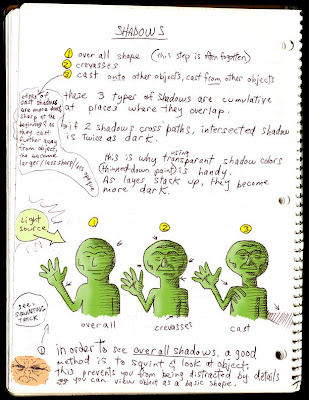 SHADOWS
1 over all shape (this step is often forgotten)
2 crevasses
3 cast onto other objects, cast from other objects
edges of
cast shadows
are more dark/
sharp at the
beginning & as
they cast
further away
from object,
the become
larger/less sharp/less opaque
these 3 types of shadows are cumulative
at places where they overlap.
if 2 shadows cross paths, intersected shadow
is twice as dark.
this is why using transparent shadow colors
(thinned down paint) is handy.
As layes stack up, they become
more dark.
Light
Source
1
2
3
see:
SQUINTING
TRICK
overall
crevasses
cast
1 in order to see overall shadows, a good
method is to squint & look at object.
this prevents you from being distracted by details
so you can view object as a basic shape.